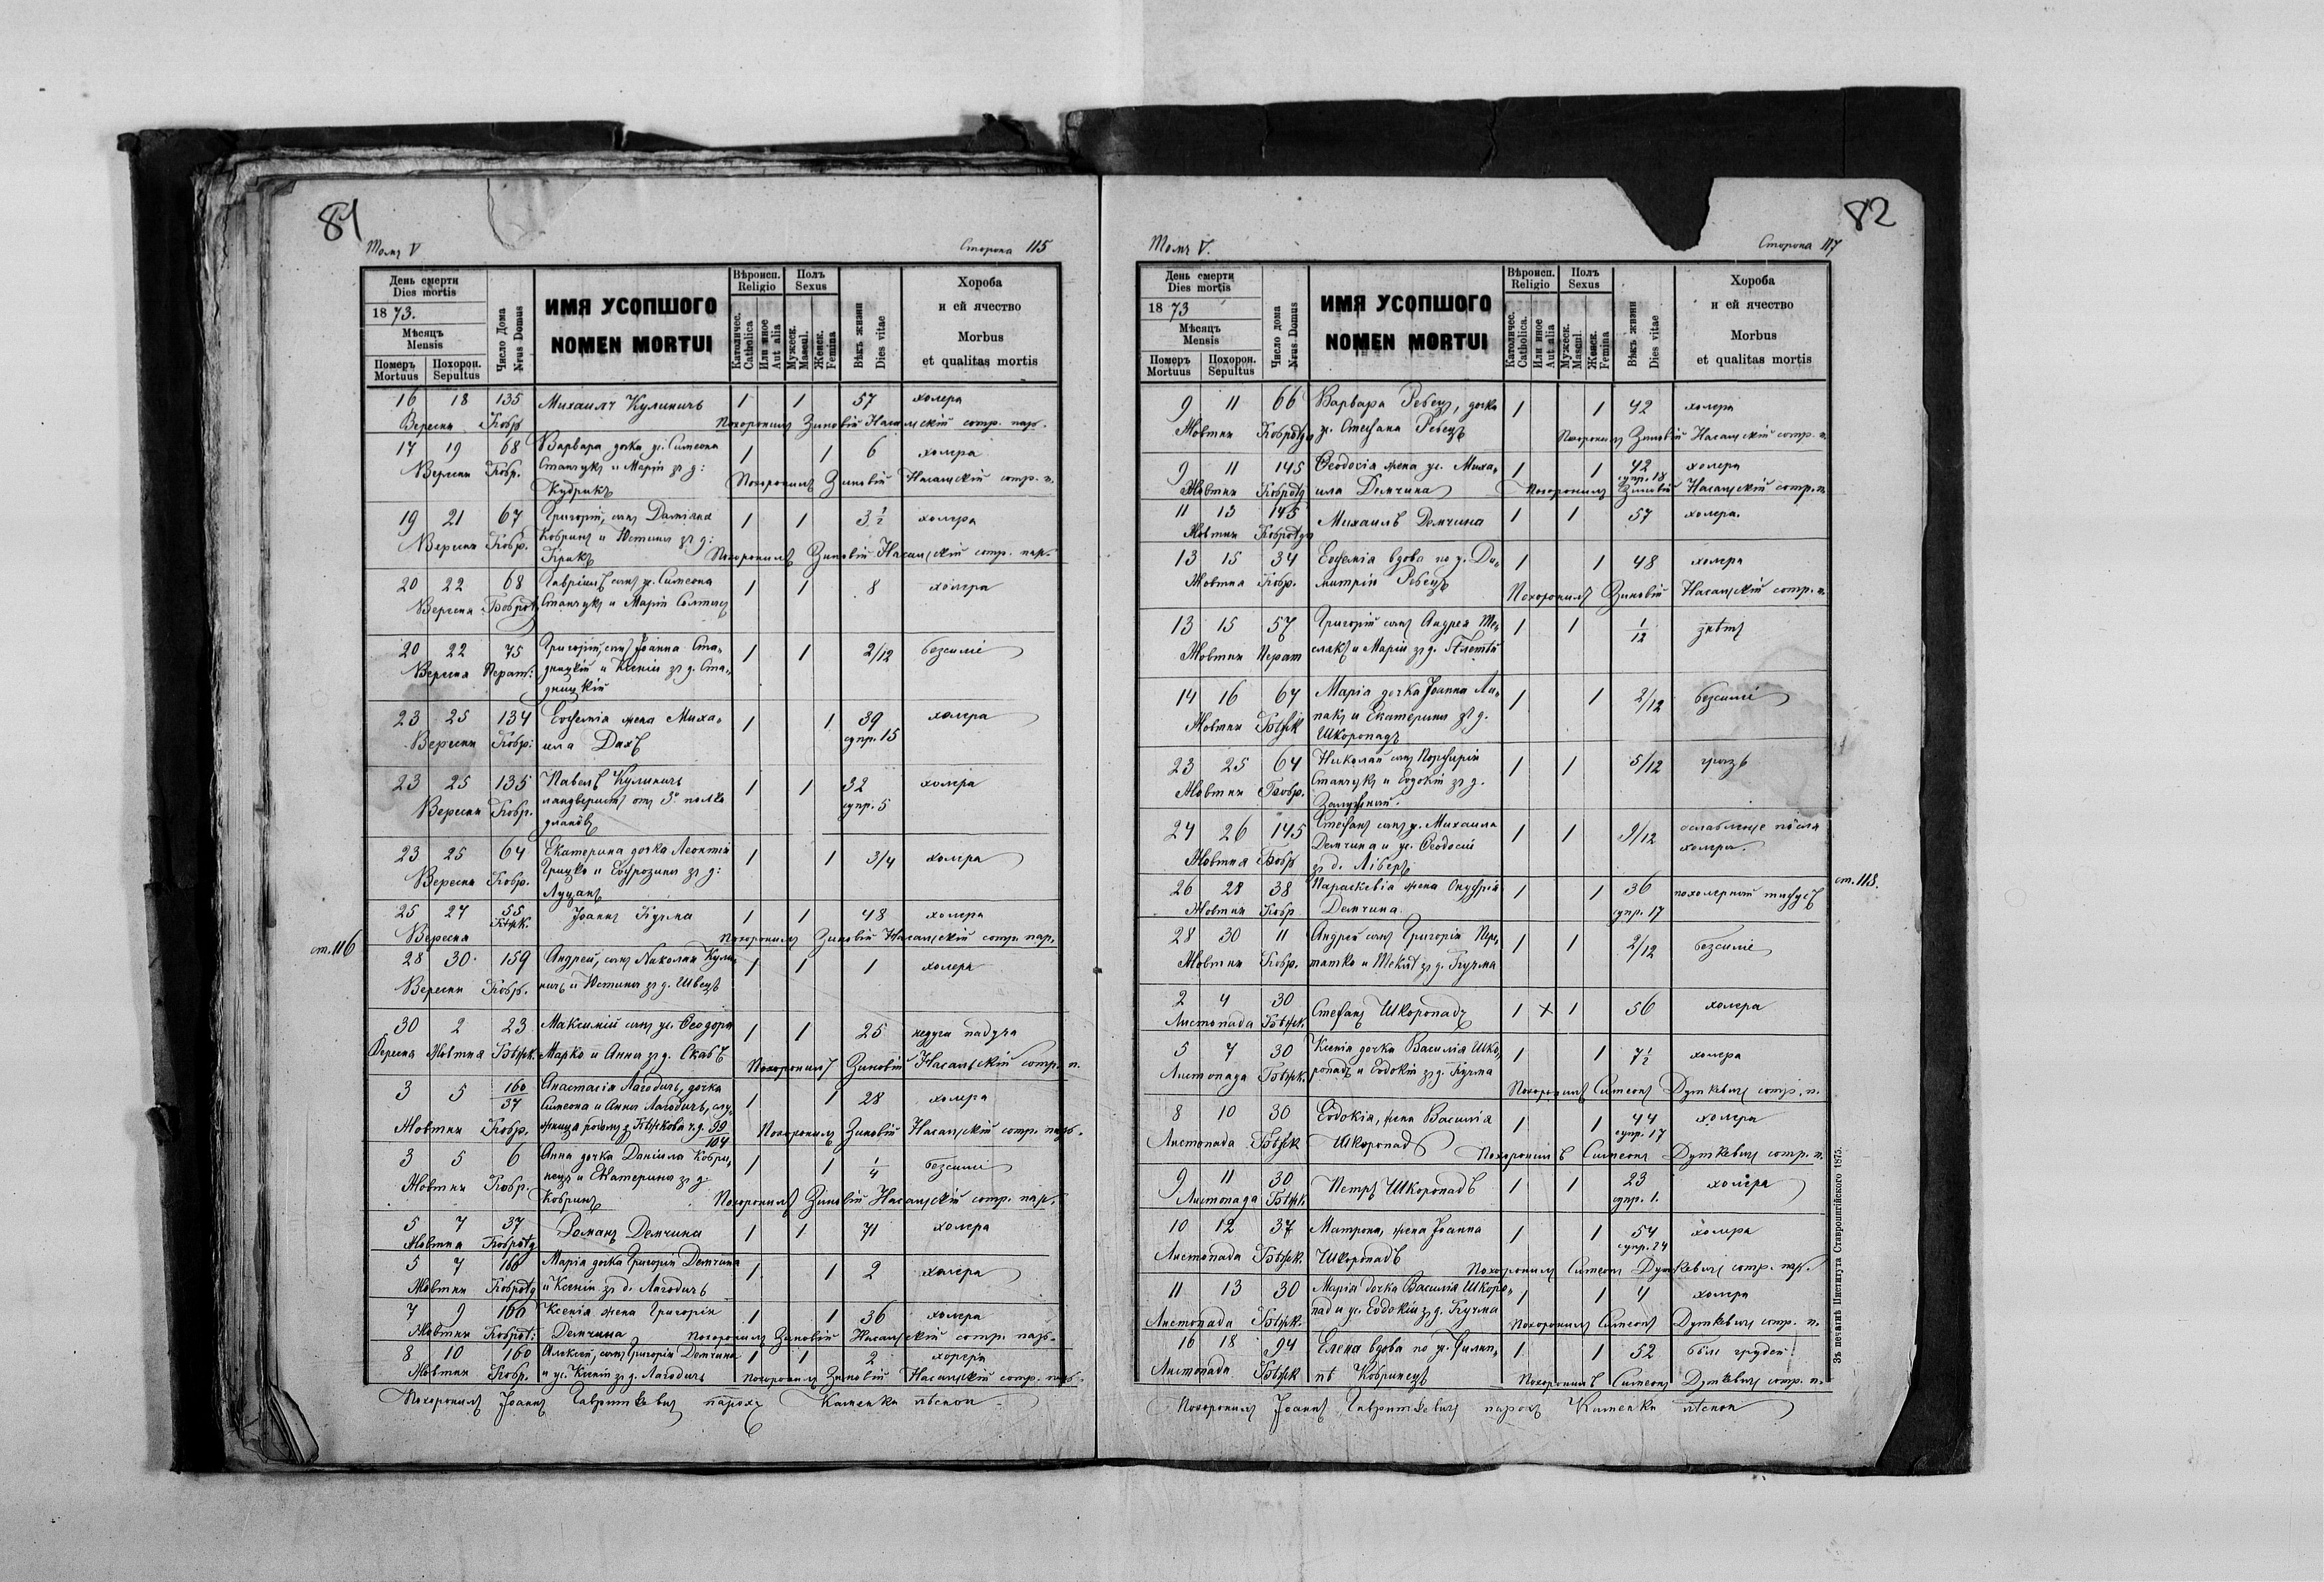 81
Томъ V
Сторона 115
День смерти
Dies mortis
1873.
Мѣсяць
Mensis
Померъ
Mortuus
Похорон.
Sepultus
Число Дома
Nrus Domus
ИМЯ УСОПШОГО
NOMEN MORTUI
Вѣроисп.
Religio
Католичес.
Catholica
Или иное
Aut alia
Полъ
Sexus
Мужеск.
Mascul.
Женск.
Femina
Вѣкъ жизни
Dies vitae
Хороба
и ей ячество
Morbus
et qualitas mortis
16 18 135 Михаилъ Кулиничъ 1 1 57 холера
Вересня Кобр. Похоронилъ Зиновій сотр. пар.
17 19 68 Варвара дочка ус. Симеона 1 1 6 холера
Вересня Кобр. Станчукъ и Маріи зъ д:
Кудрикъ Похоронилъ Зиновій сотр. п.
19 21 67 Григорій, сынъ Даміана 1 1 3½ холера
Вересня Кобр. Кобринъ и Юстины зъ д:
Крикъ Похоронилъ Зиновій сотр. пар.
20 22 68 Гавріилъ сынъ ус. Симеона 1 1 8 холера
Вересня Станчукъ и Маріи
20 22 75 Григорій, сынъ Іоанна Ста- 1 1 2/12 безсиліе
Вересня Перат: дницкій и Ксеніи зъ д. Ста-
дницкій
23 25 134 Евфемія жена Миха- 1 1 39 холера
Вересня Кобр: ила Дахъ супр. 15
23 25 135 Павелъ Кулиничъ 1 1 32 холера
Вересня Кобр. ландверистъ отъ полка супр. 5
улановъ
23 25 64 Екатерина дочка Леонтія 1 1 3/4 холера
Вересня Кобр. Грицко и Евфрозины зъ д:
Луцанъ
25 27 55 Іоаннъ Кучма 1 1 48 холера
Вересня Похоронилъ Зиновій сотр. пар.
ст. 116
28 30 159 Андрей, сынъ Николая Кули- 1 1 1 холера
Вересня Кобр. ничъ и Юстины зъ д. Швецъ
30 2 23 Максимій сынъ ус. Ѳеодора 1 1 25 недуга падуча
Вересня Жовтня Марко и Анны зъ д. Скабъ
Похоронилъ Зиновій сотр. п.
3 5 160/37 Анастасія Лагодичъ, дочка 1 1 28 холера
Симеона и Анны Лагодичъ, слу-
Жовтня Кобр. жница ч.д. 99
104
Похоронилъ Зиновій сотр. пар.
3 5 6 Анна дочка Даніила Кобри- 1 1 1/4 безсиліе
Жовтня Кобр. нецъ и Екатерины зъ д.
Кобринъ Похоронилъ Зиновій сотр. пар.
5 7 37 Романъ Демчина 1 1 71 холера
Жовтня
5 7 160 Марія дочка Григорія Демчина 1 1 2 холера
Жовтня и Ксеніи зъ д. Лагодичъ
7 9 160 Ксенія жена Григорія 1 1 36 холера
Жовтня Демчина Похоронилъ Зиновій сотр. пар.
8 10 160 Алексій, сынъ Григорія Демчина 1 1 2 холера
Жовтня Кобр. и ус. Ксеніи зъ д. Лагодичъ Похоронилъ Зиновій сотр. пар.
Похоронилъ Іоаннъ парохъ Каменки
82
Томъ V.
Сторона 117
День смерти
Dies mortis
1873
Мѣсяцъ
Mensis
Померъ
Mortuus
Похорон.
Sepultus
Число дома
Nrus Domus
ИМЯ УСОПШОГО
NOMEN MORTUI
Вѣроисп.
Religio
Католичес.
Catholica.
Или иное
Aut alia
Полъ
Sexus
Мужеск.
Mascul.
Женск.
Femina
Вѣкъ жизни
Dies vitae
Хороба
и ей ячество
Morbus
et qualitas mortis
9 11 66 Варвара Ребецъ, дочка 1 1 42 холера
Жовтня ус. Стефана Ребецъ Похоронилъ Зиновій сотр. п.
9 11 145 Ѳеодосія жена ус. Миха- 1 1 42 холера
супр. 18
Жовтня ила Демчина Похоронилъ Зиновій сотр. п.
11 13 145 Михаилъ Демчина 1 1 57 холера.
Жовтня
13 15 34 Евфемія вдова по ус. Ди- 1 1 48 холера
Жовтня Кобр. митрію Ребецъ Похоронилъ Зиновій сотр. п.
13 15 57 Григорій сынъ Андрея 1 1 1/12
Жовтня Перат и Маріи зъ д.
14 16 67 Марія дочка Іоанна Ли- 1 1 2/12 безсиліе
Жовтня пакъ и Екатерины зъ д.
Шкоропадъ
23 25 64 Николай сынъ Порфирія 1 1 5/12
Жовтня Кобр. Станчукъ и Евдокіи зъ д.
24 26 145 Стефанъ сынъ ус. Михаила 1 1 9/12 ослабленіе послѣ
Жовтня Кобр Демчина и ус. Ѳеодосіи холеры.
зъ д.
26 28 38 Параскевія жена Онуфрія 1 1 36 похолерный тифусъ
Жовтня Кобр Демчина. супр. 17
ст. 118.
28 30 11 Андрей сынъ Григорія 1 1 2/12 безсиліе
Жовтня Кобр. зъ д. Кучма
2 4 30 Стефанъ Шкоропадъ 1 + 1 56 холера
Листопада
5 7 30 Ксенія дочка Василія Шко- 1 1 7½ холера
Листопада ропадъ и Евдокіи зъ д. Кучма
Похоронилъ Симеонъ Дуткевичъ сотр. п.
8 10 30 Евдокія, жена Василія 1 1 44 холера
супр. 17
Листопада Шкоропадъ Похоронилъ Симеонъ Дуткевичъ сотр. п.
9 11 30 Петръ Шкоропадъ 1 1 23 холера
Листопада супр. 1.
10 12 37 Матрона, жена Іоанна 1 1 54 холера
супр. 24
Листопада Шкоропадъ Похоронилъ Симеонъ Дуткевичъ сотр. пар.
11 13 30 Марія дочка Василія Шкоро- 1 1 4 холера
Листопада пад и ус. Евдокіи зъ д. Кучма Похоронилъ Симеонъ Дуткевичъ сотр. п.
16 18 94 Елена вдова по ус. Филип- 1 1 52 болі грудей
Листопада пѣ Кобринецъ Похоронилъ Симеонъ Дуткевичъ сотр. п.
Похоронилъ Іоаннъ парохъ Каменки
Зъ печатнѣ Института Ставропигійского 1875.